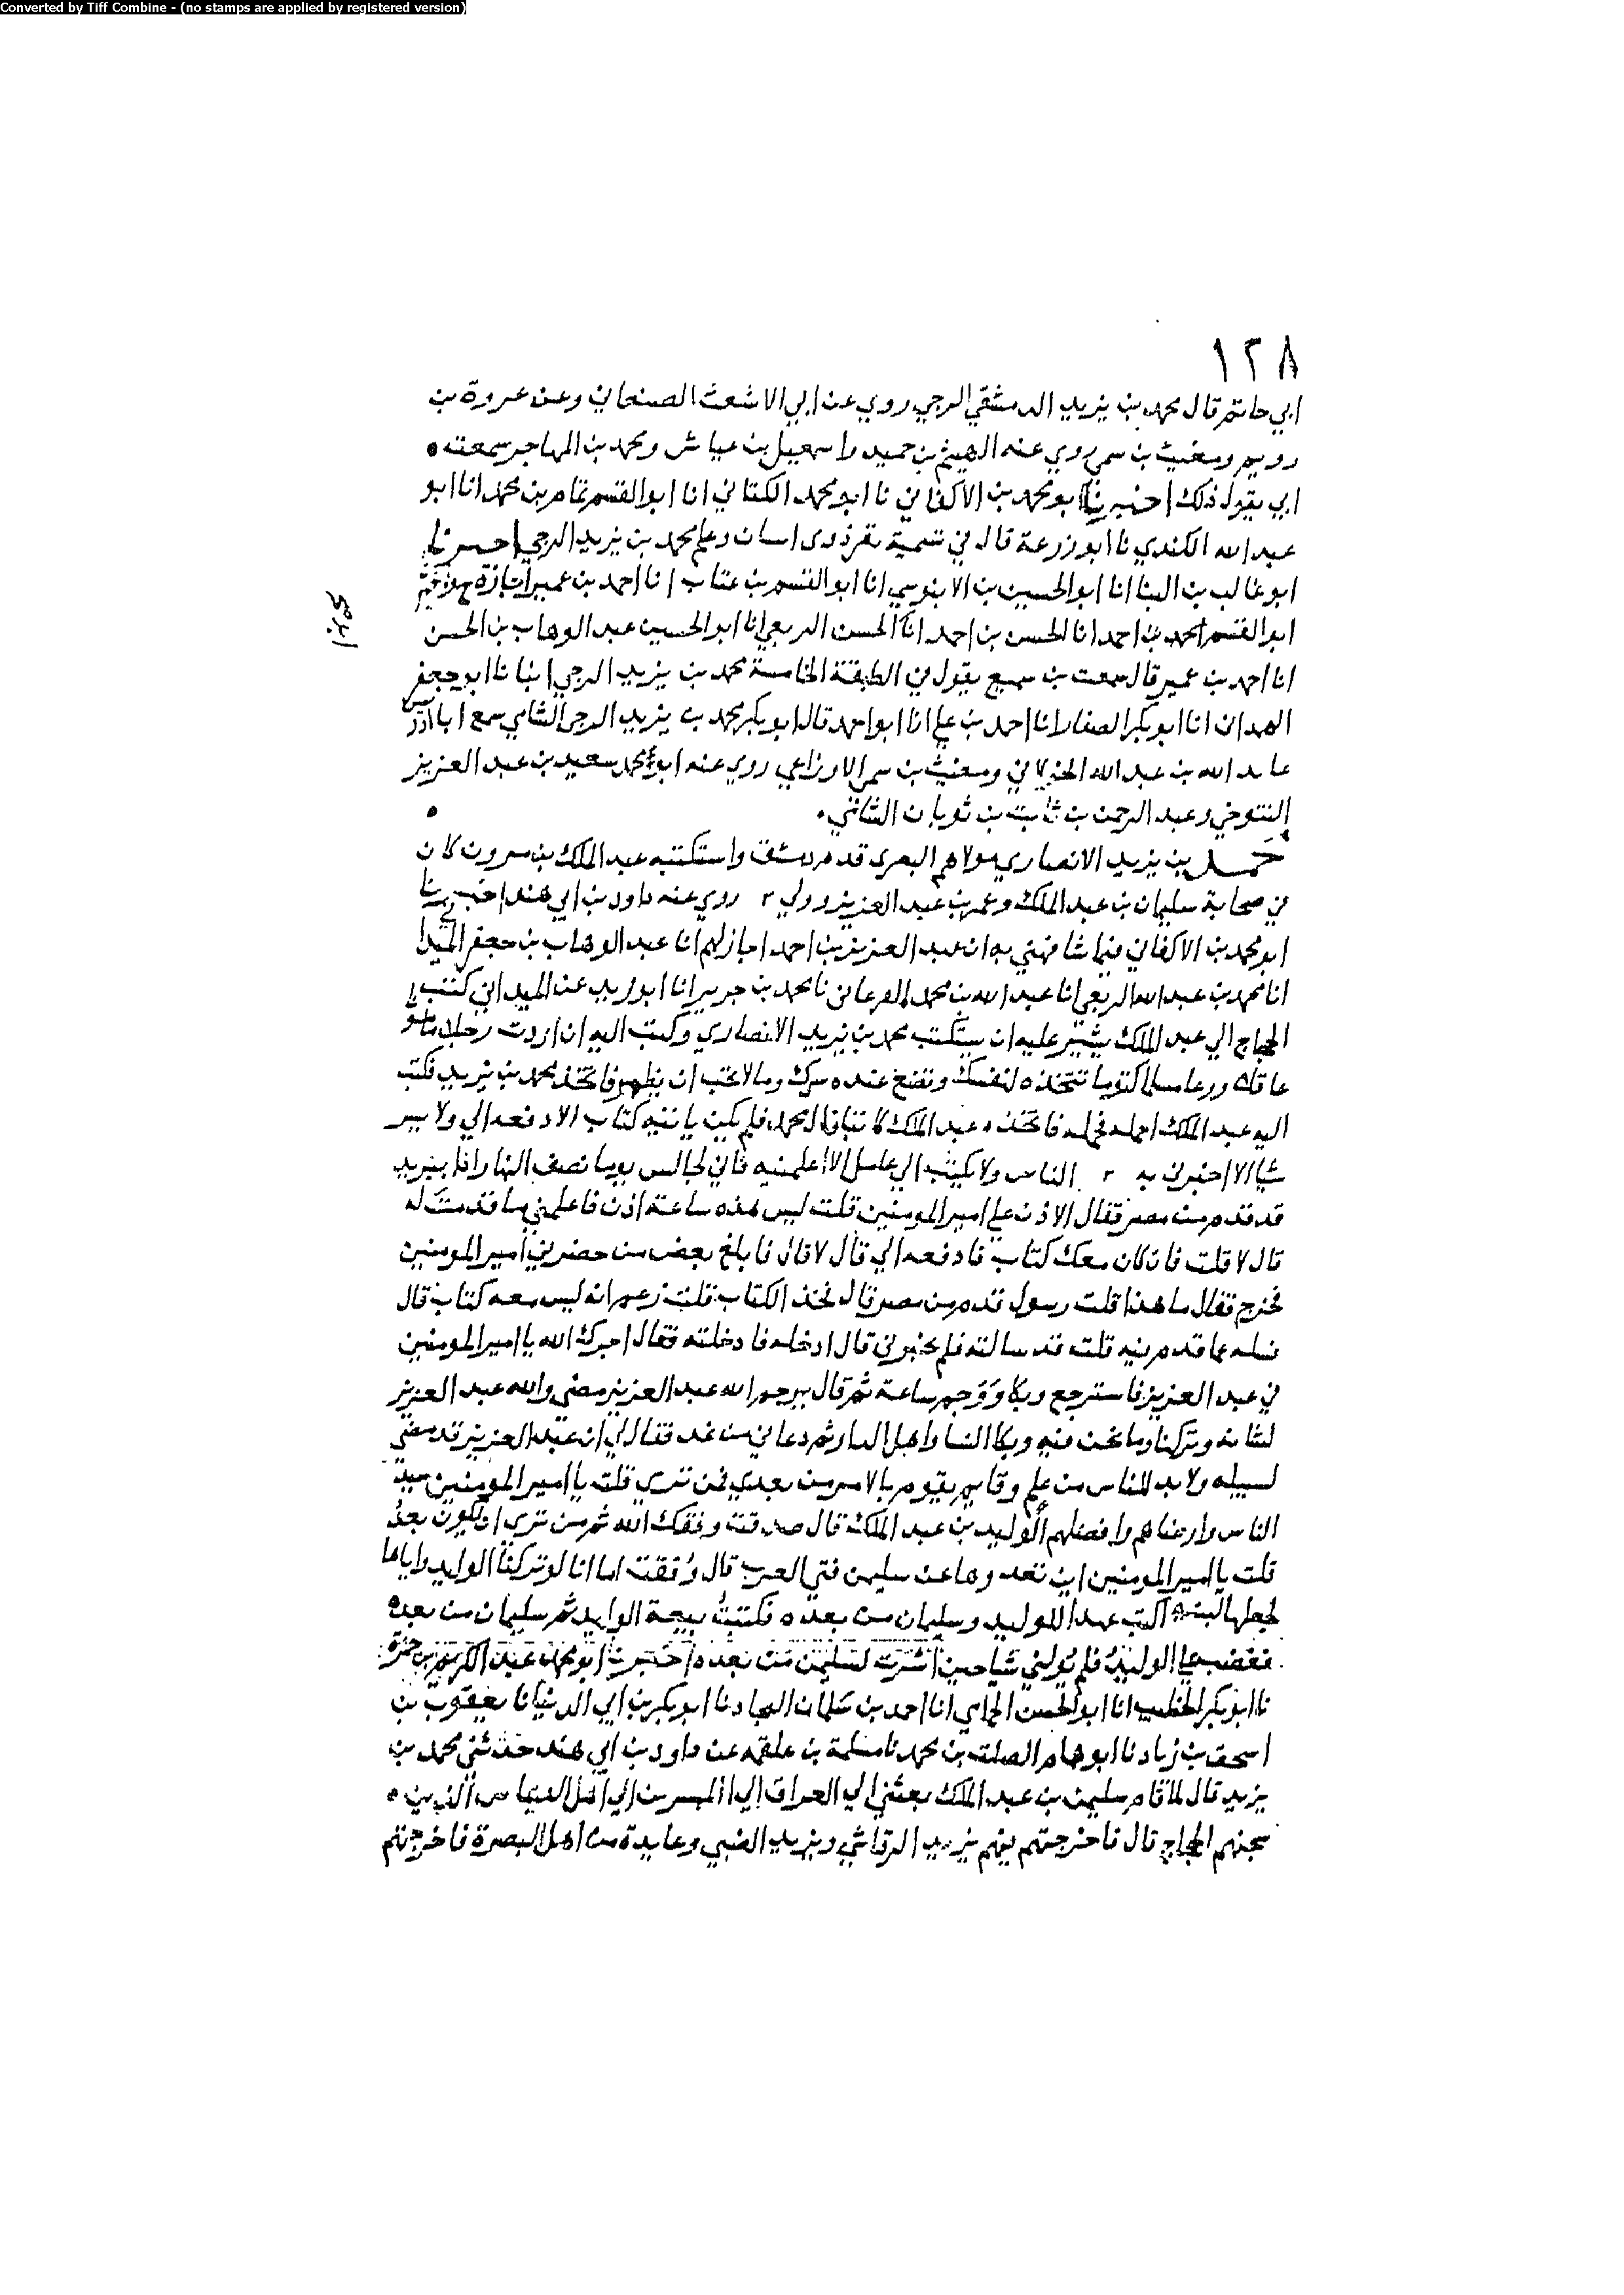 Converted by Tiff Combine - (no stamps are applied by registered version)
١٢٨
ابي حاتم قال محمد بن يزيد الدمشقي الرحبي روي عن ابي الاشعث الصنعاني وعن عروة بن
رويم ومغيث بن سمي روي عنه الهيثم بن حميد واسمعيل بن عياش ومحمد بن المهاجر سمعت
ابي يقول ذلك اخبرنا ابو محمد بن الاكفاني نا ابو محمد الكتاني انا ابو القسم تمام بن محمد انا ابو
عبد الله الكندي نا ابو زرعة قال في تسمية نفر ذوي اسنان وعلم محمد بن يزيد الرحبي اخبرنا
ابو غالب بن البنا انا ابو الحسين بن الابنوسي انا ابو القسم بن عتاب انا احمد بن عمير اجازة
ابو القسم بن احمد انا الحسن بن احمد انا الحسن الربعي انا ابو الحسين عبد الوهاب بن الحسن
انا احمد بن عمير قال سمعت بن سميع يقول في الطبقة الخامسة محمد بن يزيد الرحبي انبانا ابو جعفر
الهمداني انا ابو بكر الصفار انا احمد بن علي انا ابو احمد قال ابو بكر محمد بن يزيد الرحبي الشامي سمع ابا ادريس
عايد الله بن عبد الله الخولاني ومغيث بن سمي الاوزاعي روي عنه ابو محمد سعيد بن عبد العزيز
التنوخي وعبد الرحمن بن ثابت بن ثوبان
محمد بن يزيد الانصاري مولاهم البصري قدم دمشق واستكتبه عبد الملك بن مرون كان
في صحابة سليمان بن عبد الملك وعمر بن عبد العزيز وولي روي عنه داود بن ابي هند اخبرنا
ابو محمد بن الاكفاني فيما شافهني به ان عبد العزيز بن احمد اجاز لهم انا عبد الوهاب بن جعفر الميداني
انا محمد بن عبد الله الربعي انا عبد الله بن محمد الفرغاني نا محمد بن جرير انا ابو زيد عن الميداني كتب
الحجاج الي عبد الملك يشير عليه ان يستكتب محمد بن يزيد الانصاري وكتب اليه ان اردت رجلا مامونا
عاقلا ورعا مسلما كتوما تتخذه لنفسك وتضع عنده سرك وما لا تحب ان يظهر فاتخذ محمد بن يزيد فكتب
اليه عبد الملك احمله فحمله فاتخذه عبد الملك كاتبا قال محمد فلم يكن ياتيه كتاب الا دفعه الي ولا يستر
شيا الا اخبرني به الناس ولا يكتب الي عامل الا اعلمنيه فاني لجالس يوما نصف النهار اذا ببريد
قد قدم من مصر فقال الاذن علي امير المومنين قلت ليس هذه ساعة اذن فاعلمني ما قدمت له
قال لا قلت فان كان معك كتاب فادفعه الي قال لا قال فابلغ بعض من حضرني امير المومنين
فخرج فقال ما هذا قلت رسول قدم من مصر قال فخذ الكتاب قلت زعم انه ليس معه كتاب قال
فسله عما قدم فيه قلت قد سالته فلم يخبرني قال ادخله فادخلته فقال اجرك الله يا امير المومنين
في عبد العزيز فاسترجع وبكا ووجم ساعة ثم قال يرحم الله عبد العزيز مضي والله عبد العزيز
لشانه وتركنا وما نحن فيه وبكا النسا واهل الدار ثم دعاني من غد فقال لي ان عبد العزيز قد مضي
لسبيله ولا بد للناس من علم وقايم يقوم بالامر من بعدي فمن تري قلت يا امير المومنين سيد
الناس وارضاهم وافضلهم الوليد بن عبد الملك قال صدقت وفقك الله ثم من تري ان يكون بعد
قلت يا امير المومنين اين تعد وها عن سليمن فتي العرب قال وفقت اما انا لو تركنا الوليد واياها
لجعلها لبنيه اكتب عهدا للوليد وسليمان من بعده فكتبت بيعة الوليد ثم سليمان من بعده
فغضب علي الوليد فلم يولني شيا حين اشرت لسليمن من بعده اخبرنا ابو محمد عبد الكريم بن حمزة
نا ابو بكر الخطيب انا ابو الحسن الحمامي انا احمد بن سلمان النجاد نا ابو بكر بن ابي الدنيا نا يعقوب بن
اسحق بن زياد نا ابو همام الصلت بن محمد نا مسلمة بن علقمه عن داود بن ابي هند حدثني محمد بن
يزيد قال لما قام سليمن بن عبد الملك بعثني الي العراق الي المسرين الي اهل الديماس الذين
سجنهم الحجاج قال فاخرجتهم فيهم يزيد الرقاشي ويزيد الضبي وعابدة من اهل البصرة فاخرجتهم